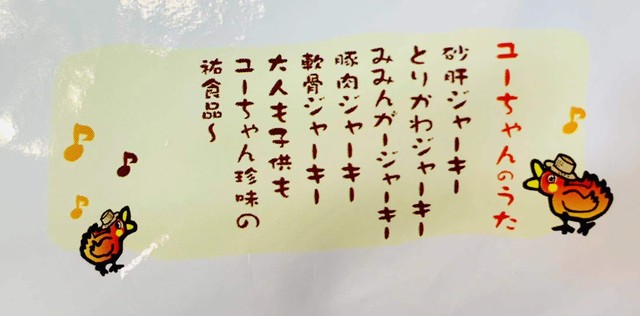 ユーちゃんのうた
砂肝ジャーキー
とりかわジャーキー
みみんがージャーキー
豚肉ジャーキー
軟骨ジャーキー
大人も子供も
ユーちゃん珍味の
祐食品～